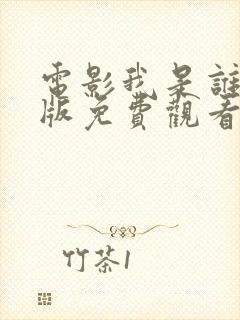 電影我是誰
版免費觀看
竹茶1